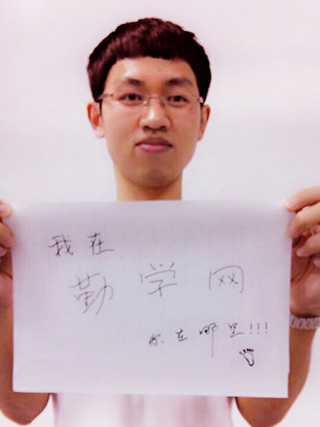 我在
勤学网
你在哪里!!!